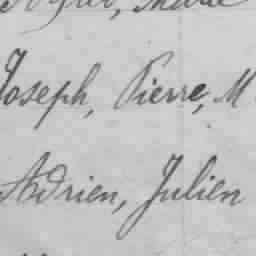 Marie
Joseph, Pierre, M
Adrien, Julien